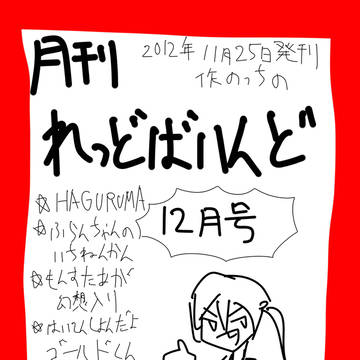 月刊
2012年 11月25日発刊
作のっちの
れっどばんど
12月号
☆HAGURUMA
☆ふらんちゃんの
いちねんかん
☆もんすたあが
幻想入り
☆はいてんしょんだよ
ゴールドくん